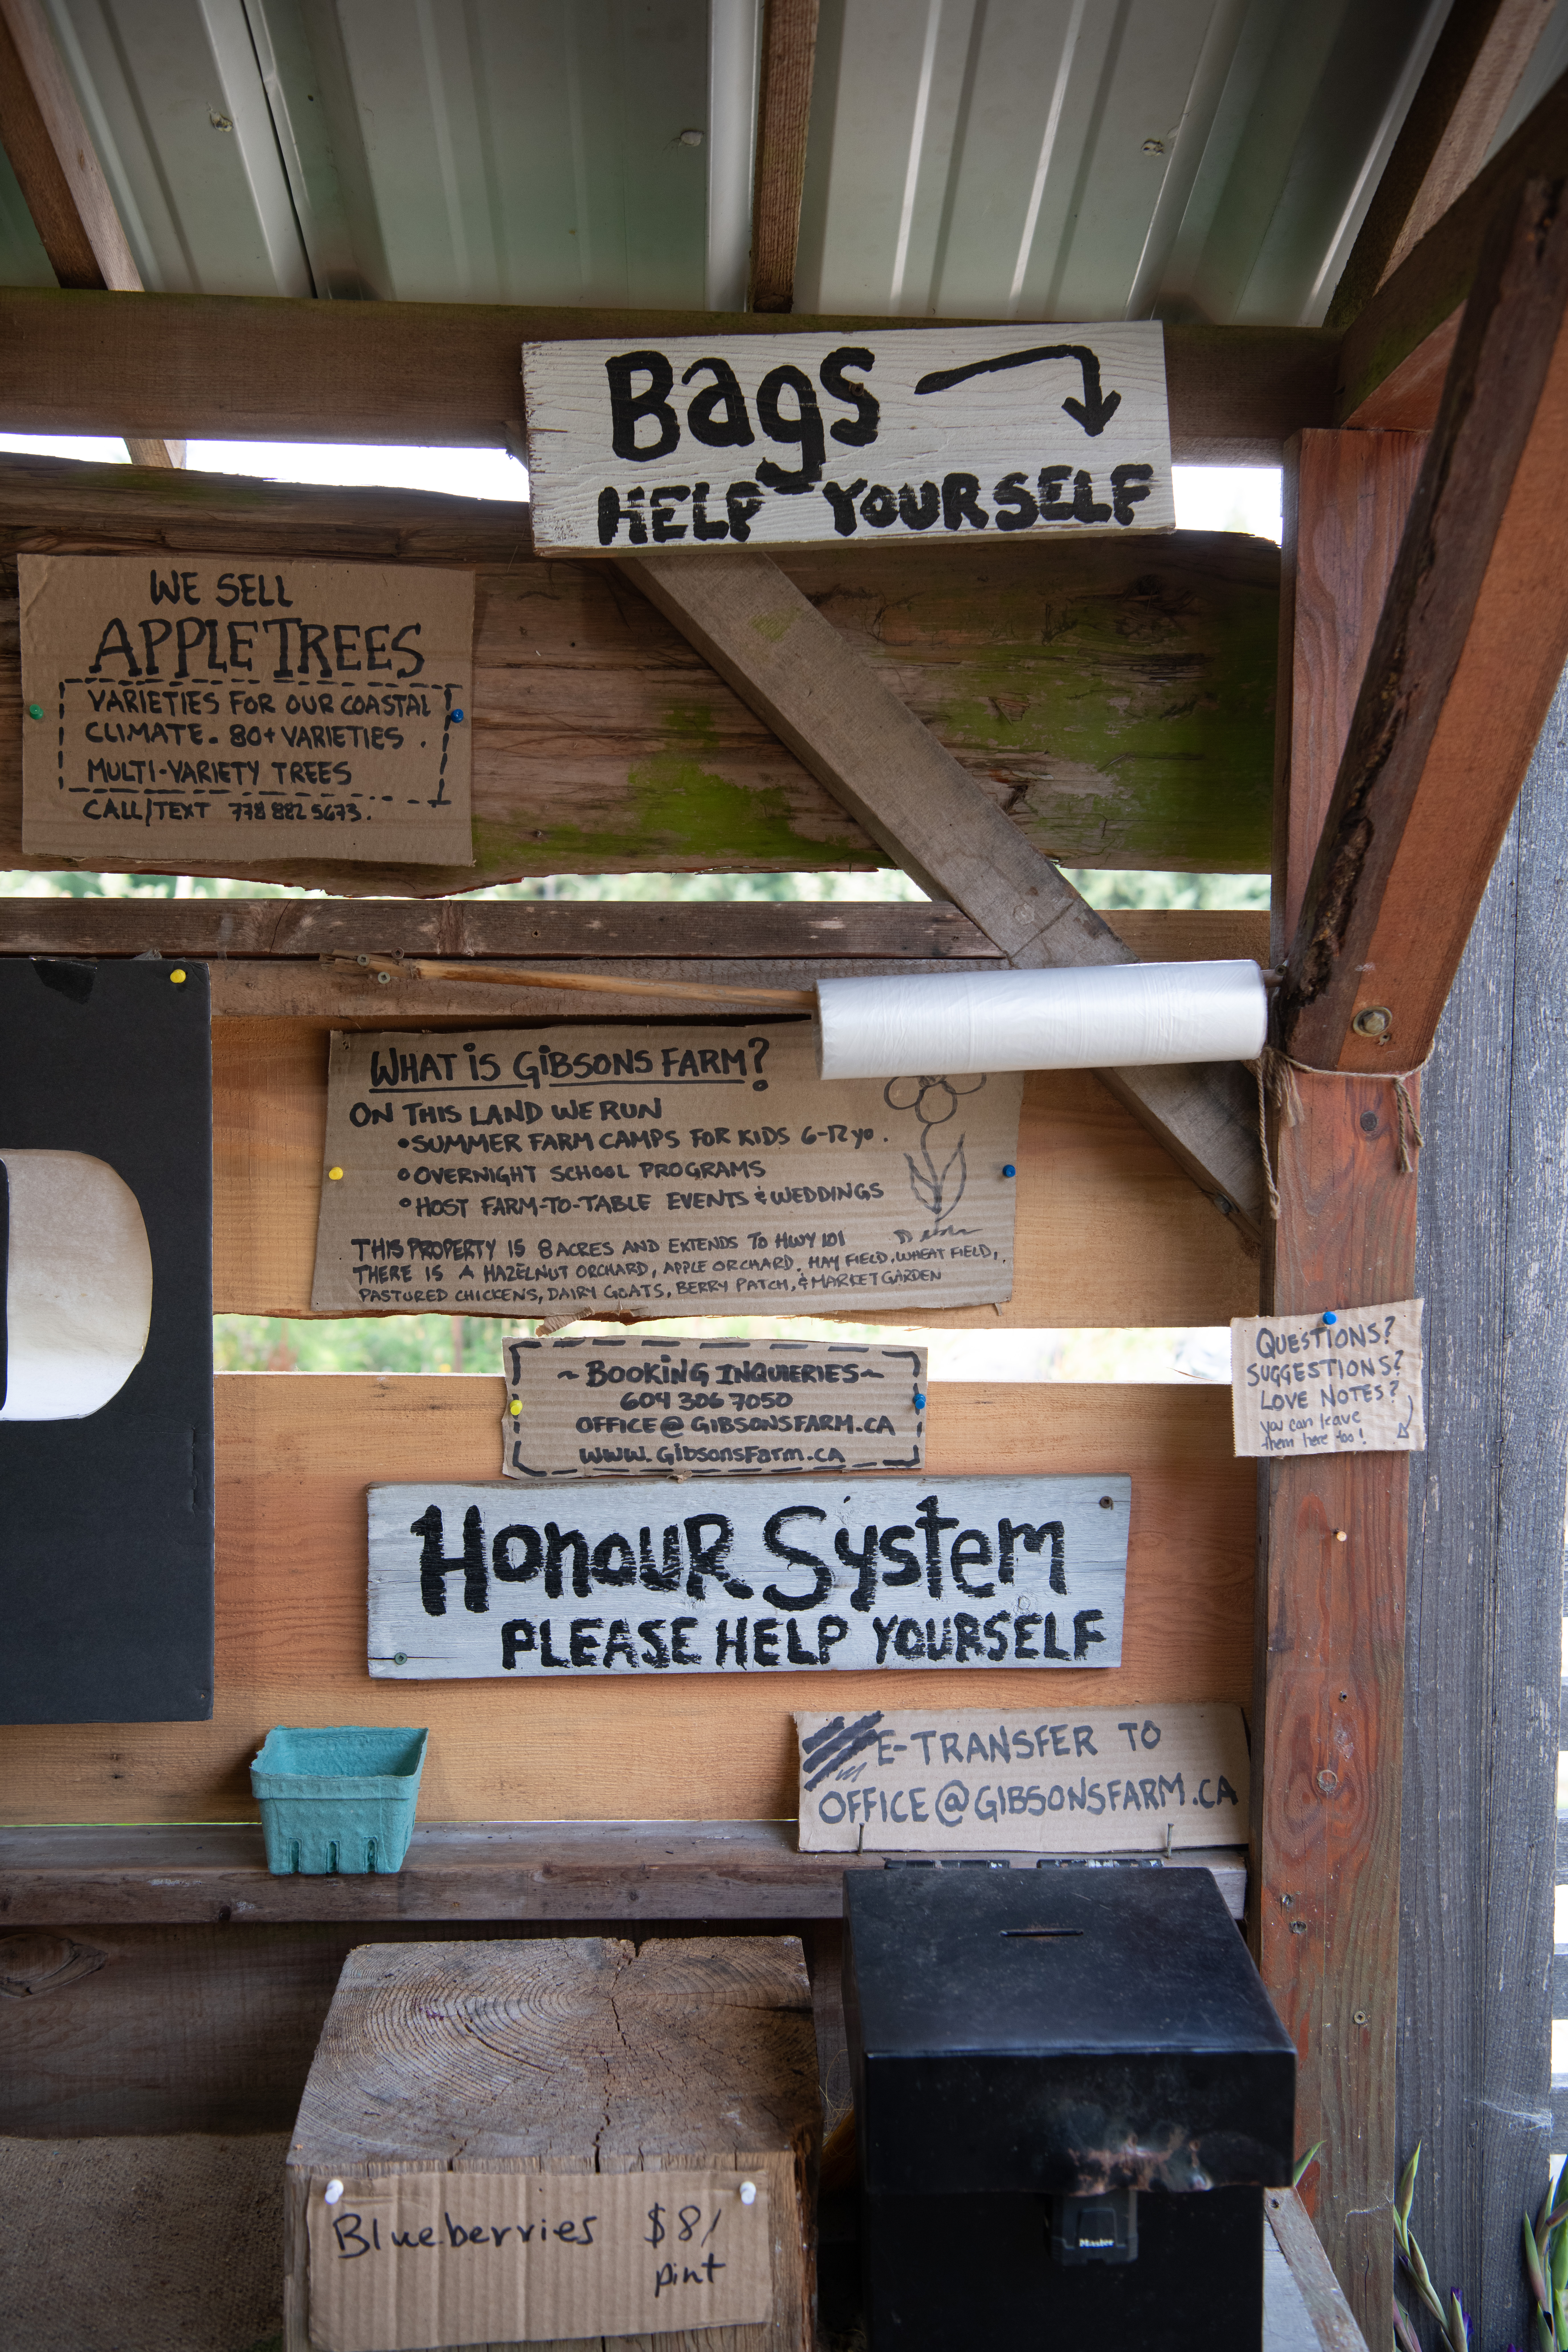 Bags
HELP YOURSELF
WE SELL
APPLE TREES
VARIETIES FOR OUR COASTAL
CLIMATE. 80+ VARIETIES.
MULTI-VARIETY TREES
CALL/TEXT 778 882 5673.
WHAT IS GIBSONS FARM?
ON THIS LAND WE RUN
• SUMMER FARM CAMPS FOR KIDS 6-12 yo.
• OVERNIGHT SCHOOL PROGRAMS
• HOST FARM-TO-TABLE EVENTS & WEDDINGS
THIS PROPERTY IS 8 ACRES AND EXTENDS TO HWY 101
THERE IS A HAZELNUT ORCHARD, APPLE ORCHARD, HAY FIELD, WHEAT FIELD,
PASTURED CHICKENS, DAIRY GOATS, BERRY PATCH, & MARKET GARDEN
~ BOOKING INQUIERIES ~
604 306 7050
OFFICE@GIBSONSFARM.CA
WWW.GibsonsFarm.CA
QUESTIONS?
SUGGESTIONS?
LOVE NOTES?
you can leave
them here too!
HonouR System
PLEASE HELP YOURSELF
E-TRANSFER TO
OFFICE@GIBSONSFARM.CA
Blueberries $8/
pint
Master